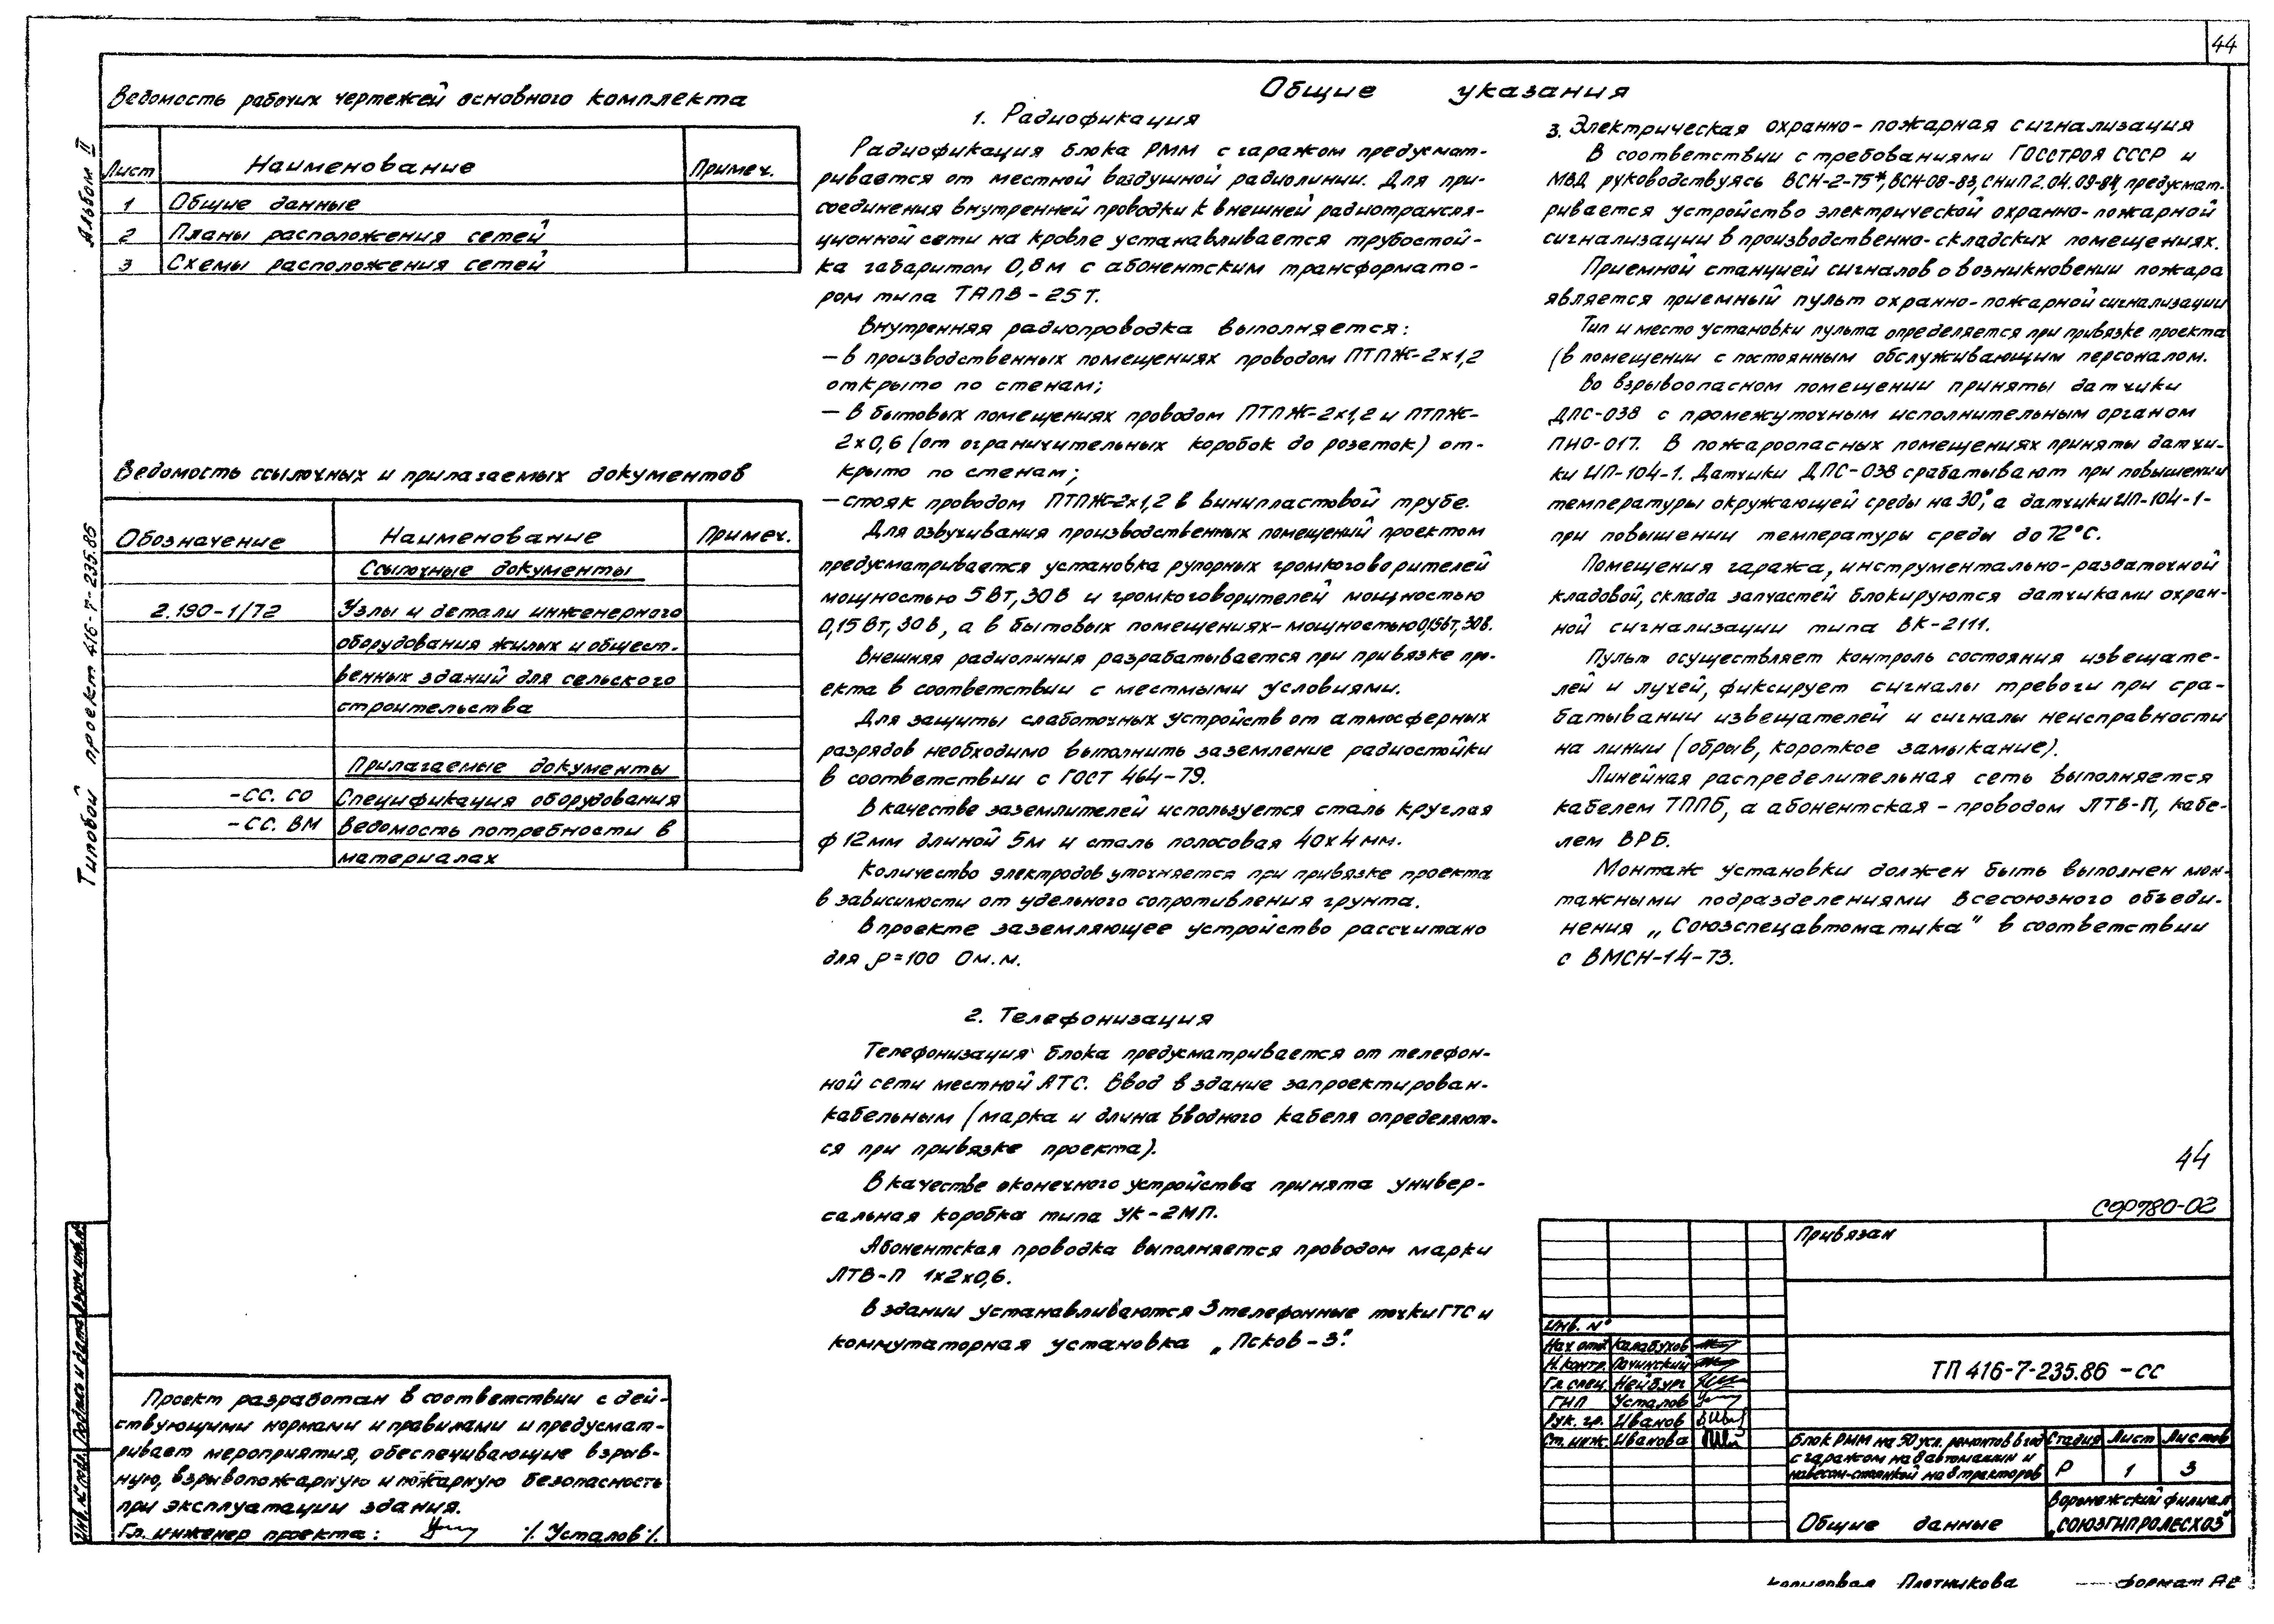 44
Альбом II
Типовой проект 416-7-235.86
Ведомость рабочих чертежей основного комплекта
Лист Наименование Примеч.
1 Общие данные
2 Планы расположения сетей
3 Схемы расположения сетей
Ведомость ссылочных и прилагаемых документов
Обозначение Наименование Примеч.
Ссылочные документы
2.190-1/72 Узлы и детали инженерного
оборудования жилых и общест-
венных зданий для сельского
строительства
Прилагаемые документы
-СС. СО Спецификация оборудования
-СС. ВМ Ведомость потребности в
материалах
Общие указания
1. Радиофикация
Радиофикация блока РММ с гаражом предусмат-
ривается от местной воздушной радиолинии. Для при-
соединения внутренней проводки к внешней радиотрансля-
ционной сети на кровле устанавливается трубостой-
ка габаритом 0,8м с абонентским трансформато-
ром типа ТАПВ-25Т.
Внутренняя радиопроводка выполняется:
— в производственных помещениях проводом ПТПЖ-2х1,2
открыто по стенам;
— в бытовых помещениях проводом ПТПЖ-2х1,2 и ПТПЖ-
2х0,6 (от ограничительных коробок до розеток) от-
крыто по стенам;
— стояк проводом ПТПЖ-2х1,2 в винипластовой трубе.
Для озвучивания производственных помещений проектом
предусматривается установка рупорных громкоговорителей
мощностью 5Вт,30В и громкоговорителей мощностью
0,15Вт,30В, а в бытовых помещениях-мощностью 0,15Вт,30В.
Внешняя радиолиния разрабатывается при привязке про-
екта в соответствии с местными условиями.
Для защиты слаботочных устройств от атмосферных
разрядов необходимо выполнить заземление радиостойки
в соответствии с ГОСТ 464-79.
В качестве заземлителей используется сталь круглая
ф 12мм длиной 5м и сталь полосовая 40х4мм.
Количество электродов уточняется при привязке проекта
в зависимости от удельного сопротивления грунта.
В проекте заземляющее устройство рассчитано
для ρ=100 Ом.м.
2. Телефонизация
Телефонизация блока предусматривается от телефон-
ной сети местной АТС. Ввод в здание запроектирован-
кабельным (марка и длина вводного кабеля определяют-
ся при привязке проекта).
В качестве оконечного устройства принята универ-
сальная коробка типа УК-2МП.
Абонентская проводка выполняется проводом марки
ЛТВ-П 1х2х0,6.
В здании устанавливаются 3 телефонные точки ГТС и
коммутаторная установка „Псков-3".
3. Электрическая охранно-пожарная сигнализация
В соответствии с требованиями ГОССТРОЯ СССР и
МВД руководствуясь ВСН-2-75*, ВСН-08-83, СНиП 2.04.09-84, предусмат-
ривается устройство электрической охранно-пожарной
сигнализации в производственно-складских помещениях.
Приемной станцией сигналов о возникновении пожара
является приемный пульт охранно-пожарной сигнализации
Тип и место установки пульта определяется при привязке проекта
(в помещении с постоянным обслуживающим персоналом.
Во взрывоопасном помещении приняты датчики
ДПС-038 с промежуточным исполнительным органом
ПИО-017. В пожароопасных помещениях приняты датчи-
ки ИП-104-1. Датчики ДПС-038 срабатывают при повышении
температуры окружающей среды на 30°, а датчики ИП-104-1-
при повышении температуры среды до 72°С.
Помещения гаража, инструментально-раздаточной
кладовой, склада запчастей блокируются датчиками охран-
ной сигнализации типа ВК-2111.
Пульт осуществляет контроль состояния извещате-
лей и лучей, фиксирует сигналы тревоги при сра-
батывании извещателей и сигналы неисправности
на линии (обрыв, короткое замыкание).
Линейная распределительная сеть выполняется
кабелем ТППБ, а абонентская - проводом ЛТВ-П, кабе-
лем ВРБ.
Монтаж установки должен быть выполнен мон-
тажными подразделениями Всесоюзного объеди-
нения „Союзспецавтоматика" в соответствии
с ВМСН-14-73.
Проект разработан в соответствии с дей-
ствующими нормами и правилами и предусмат-
ривает мероприятия, обеспечивающие взрыв-
ную, взрывопожарную и пожарную безопасность
при эксплуатации здания.
Гл. инженер проекта: /Усталов/
Инв. № подл. Подпись и дата Взам. инв. №
44
СФ780-02
Привязан
Инв. №
Нач. отд. Калабухов
Н. контр. Починский
Гл. спец. Нейбург
ГИП Усталов
Рук. гр. Иванов
Ст. инж. Иванова
ТП 416-7-235.86 -СС
Блок РММ на 50 усл. ремонтов в год
с гаражом на 8 автомашин и
навесом-стоянкой на 8 тракторов
Стадия Лист Листов
Р 1 3
Общие данные
Воронежский филиал
„СОЮЗГИПРОЛЕСХОЗ"
Копировал Плотникова формат А2